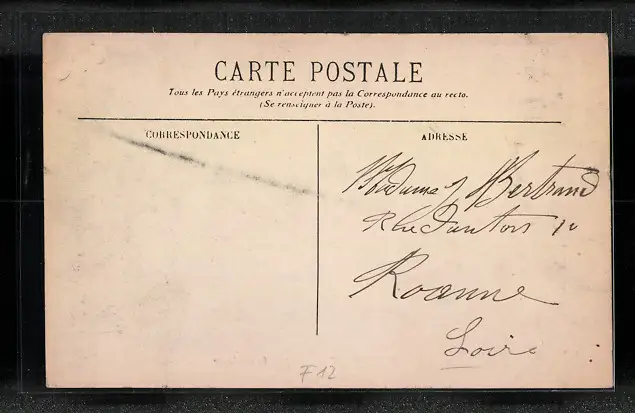 CARTE POSTALE
Tous les Pays étrangers n'acceptent pas la Correspondance au recto.
(Se renseigner à la Poste).
CORRESPONDANCE
ADRESSE
Madame J Bertrand
Rue
Roanne
Loire
F12